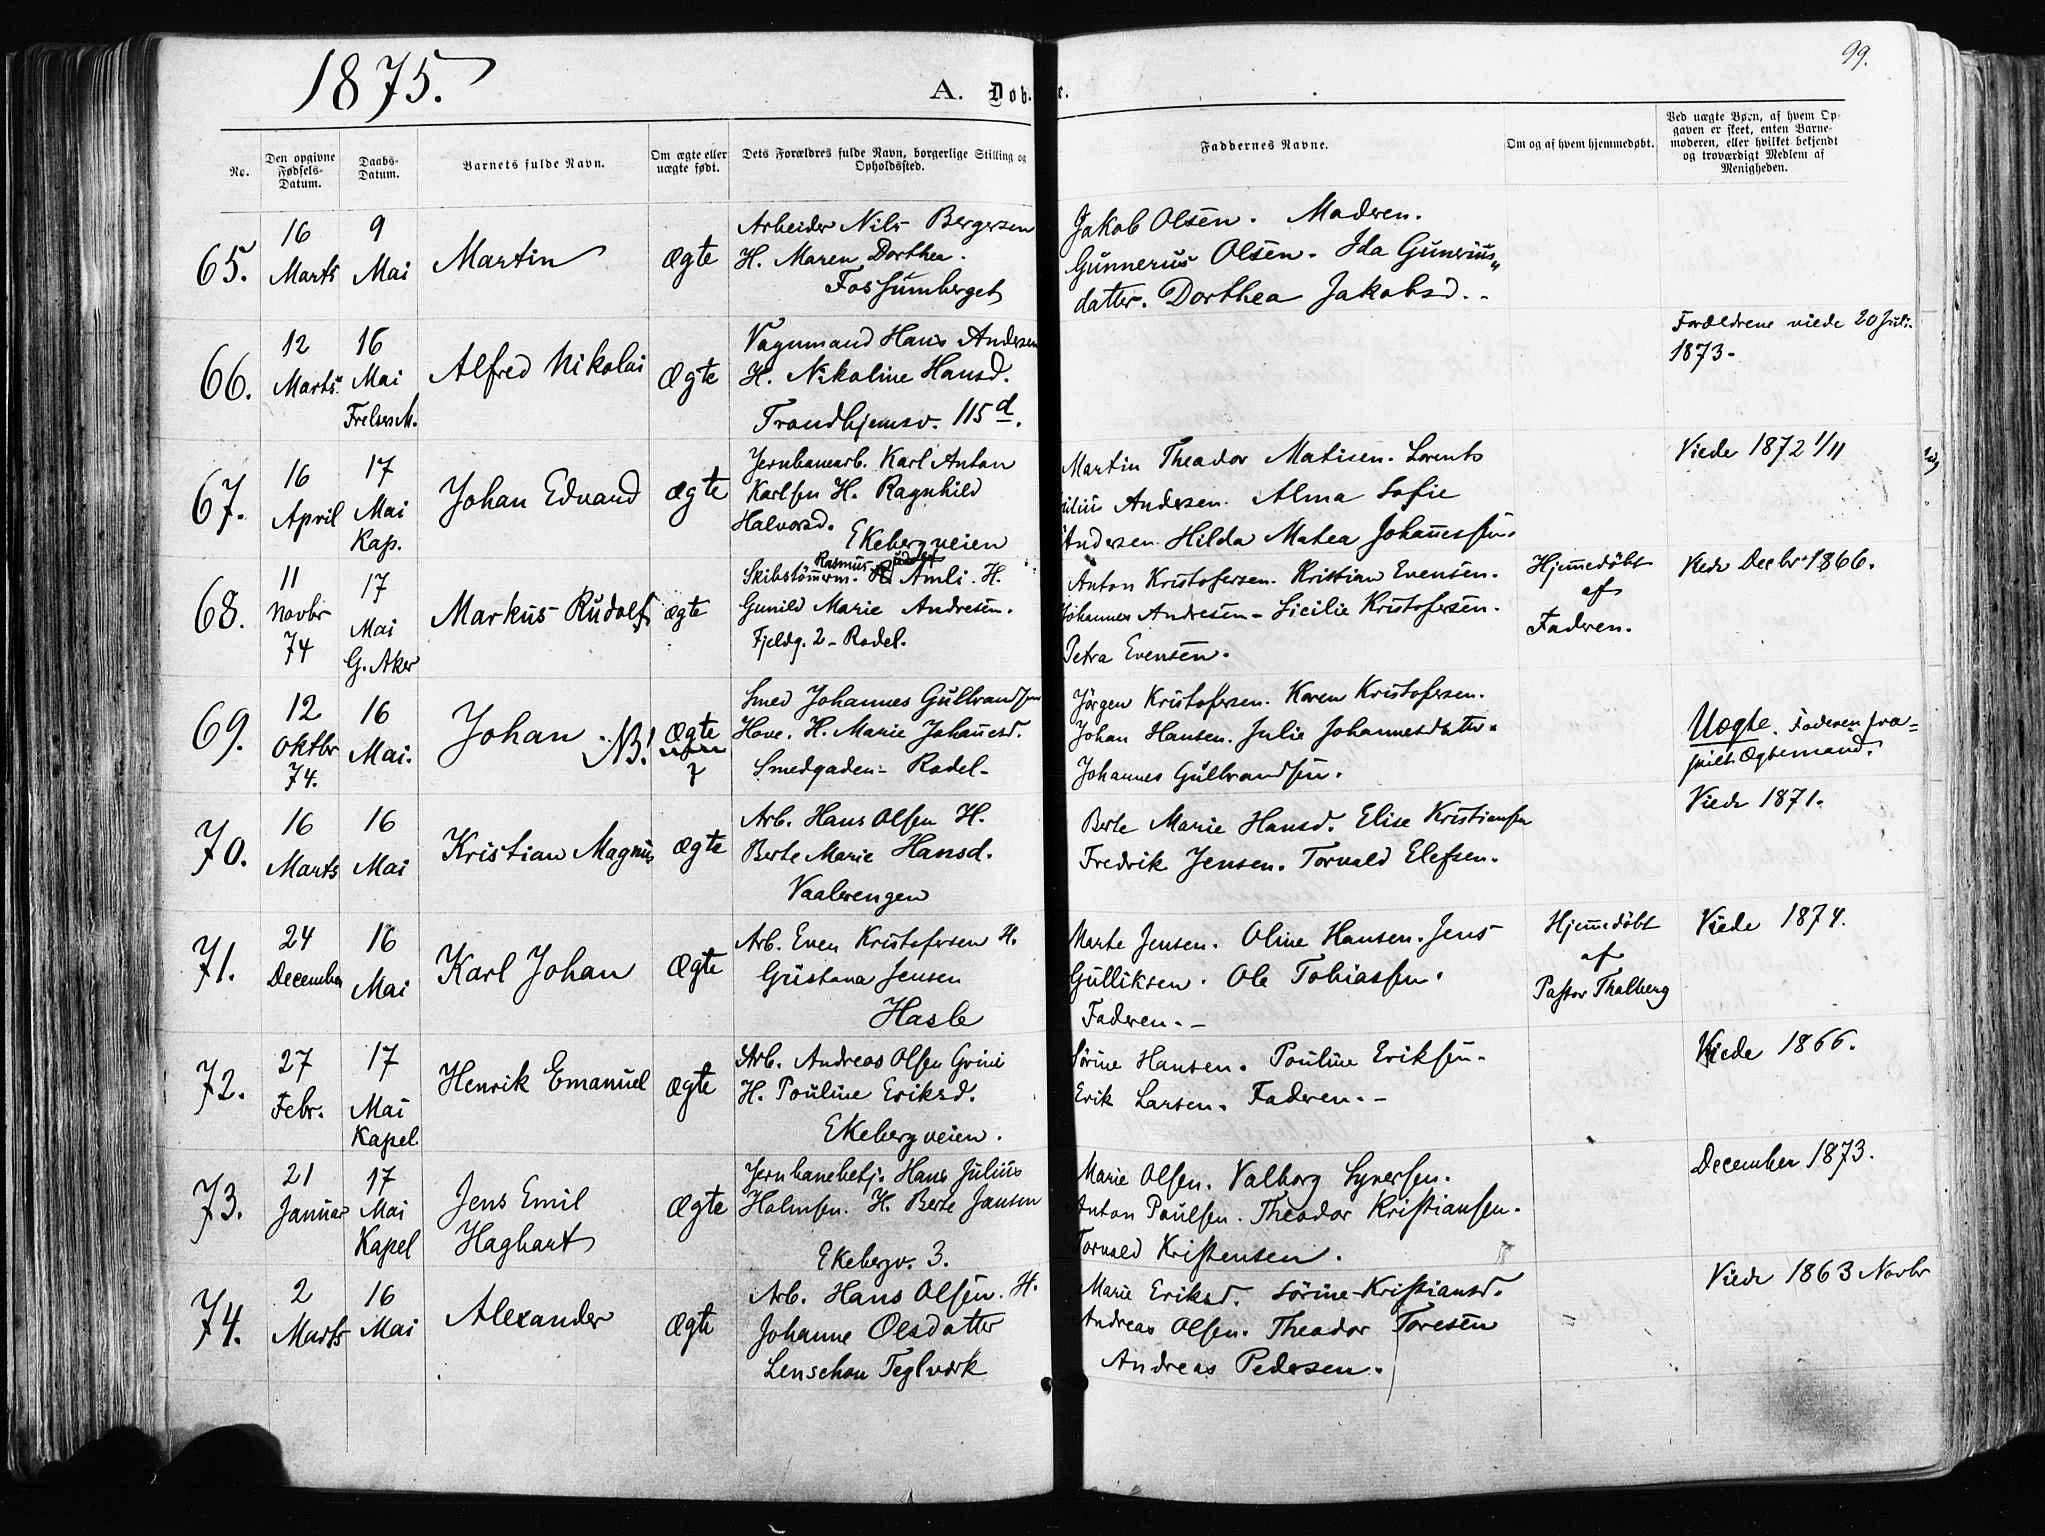 1875.
99.
A. Døb. e.
No.
Den opgivne Fødsels-Datum.
Daabs-Datum.
Barnets fulde Navn.
Om ægte eller uægte født.
Dets Forældres fulde Navn, borgerlige Stilling og Opholdssted.
Faddernes Navne.
Om og af hvem hjemmedøbt.
Ved uægte Børn, af hvem Op-
gaven er skeet, enten Barne-
moderen, eller hvilket bekjendt
og troværdigt Medlem af
Menigheden.
65.
16
Marts
9
Mai
Martin
Ægte
Arbeider Nils Bergersen
H. Maren Dorthea.
Fossumberget
Jakob Olsen. Moderen.
Gunnerius Olsen. Ida Gunerius„
datter. Dorthea Jakobsd.
66.
12
Marts
16
Mai
Frelsers M.
Alfred Nikolai
Ægte
Vognmand Hans Andersen
H. Nikoline Hansd.
Trondhjemsv. 115 d.
Forældrene viede 20 Juli
1873.
67.
16
April
17
Mai
Kap.
Johan Edvard
Ægte
Jernbanearb. Karl Anton
Karlsen H. Ragnhild
Halvorsd.
Ekebergveien
Martin Theodor Matisen. Lorents
Julius Andersen. Alma Sofie
Andersen. Hilda Matea Johannessen.
Viede 1872 1/11
68.
11
Novbr
74
17
Mai
G. Aker
Markus Rudolf
Ægte
Rasmus
Skibstömmerm. Åmli. H.
Gunild Marie Andresen.
Fjeldg. 2 - Rodel.
Anton Kristofersen. Kristian Evensen.
Johannes Andresen - Sicilie Kristofersen.
Petra Evensen.
Hjemmedöbt
af
Faderen.
Viede Decbr 1866.
69.
12
Oktbr
74.
16
Mai.
Johan NB!
Ægte
Smed Johannes Gulbrandsen
Hove. H. Marie Johannesd.
Smedgaden - Rodel.
Jörgen Kristofersen. Karen Kristofersen.
Johan Hansen. Julie Johannesdatter.
Johannes Gulbrandsen.
Uægte. Faderen fra-
skilt Ægtemand.
70.
16
Marts
16
Mai
Kristian Magnus
Ægte
Arb. Hans Olsen H.
Berte Marie Hansd.
Vaalerengen
Berte Marie Hansd. Elise Kristiansen
Fredrik Jensen. Torvald Elefsen.
Viede 1871.
71.
24
December
16
Mai
Karl Johan
Ægte
Arb. Even Kristofersen H.
Gustana Jensen
Hasle
Marte Jensen. Oline Hansen. Jens
Gulliksen. Ole Tobiassen.
Faderen.
Hjemmedöbt
af
Pastor Thalberg
Viede 1874.
72.
27
Febr.
17
Mai
Kapel
Henrik Emanuel
Ægte
Arb. Andreas Olsen Grini
H. Pouline Eriksd.
Ekebergveien.
Sörine Hansen. Pouline Eriksen.
Erik Larsen. Faderen.
Viede 1866.
73.
21
Januar
17
Mai
Kapel
Jens Emil
Haghart
Ægte
Jernbanebetj. Hans Julius
Holmsen. H. Berte Jansen
Ekebergv. 3.
Marie Olsen. Valborg Syversen.
Anton Paulsen. Theodor Kristiansen.
Torvald Kristensen.
December 1873.
74.
2
Marts
16
Mai
Alexander
Ægte
Arb. Hans Olsen. H.
Johanne Olsdatter
Lenschou Teglværk
Marie Eriksd. Sörine Kristiansd.
Andreas Olsen. Theodor Toresen
Andreas Pedersen.
Viede 1863 Novbr